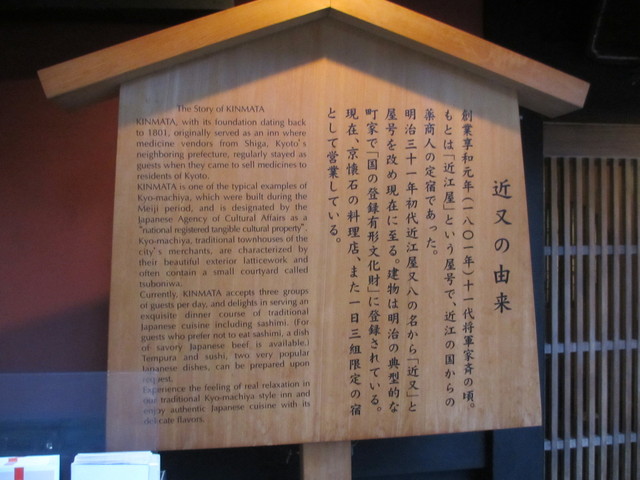 The Story of KINMATA
KINMATA, with its foundation dating back
to 1801, originally served as an inn where
medicine vendors from Shiga, Kyoto's
neighboring prefecture, regularly stayed as
guests when they came to sell medicines to
residents of Kyoto.
KINMATA is one of the typical examples of
Kyo-machiya, which were built during the
Meiji period, and is designated by the
Japanese Agency of Cultural Affairs as a
"national registered tangible cultural property".
Kyo-machiya, traditional townhouses of the
city's merchants, are characterized by
their beautiful exterior latticework and
often contain a small courtyard called
tsuboniwa.
Currently, KINMATA accepts three groups
of guests per day, and delights in serving an
exquisite dinner course of traditional
Japanese cuisine including sashimi. (For
guests who prefer not to eat sashimi, a dish
of savory Japanese beef is available.)
Tempura and sushi, two very popular
Japanese dishes, can be prepared upon
request.
Experience the feeling of real relaxation in
our traditional Kyo-machiya style inn and
enjoy authentic Japanese cuisine with its
delicate flavors.
近又の由来
創業享和元年(一八〇一年)十一代将軍家斉の頃。
もとは「近江屋」という屋号で、近江の国からの
薬商人の定宿であった。
明治三十一年初代近江屋又八の名から「近又」と
屋号を改め現在に至る。建物は明治の典型的な
町家で「国の登録有形文化財」に登録されている。
現在、京懐石の料理店、また一日三組限定の宿
として営業している。